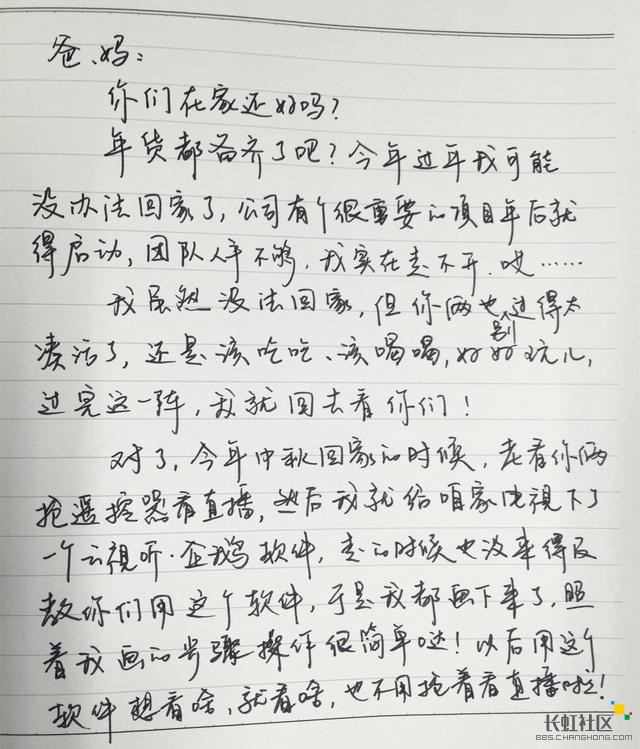 爸、妈：
你们在家还好吗？
年货都备齐了吧？今年过年我可能
没办法回家了，公司有个很重要的项目年后就
得启动，团队人手不够，我实在走不开，哎……
我虽然没法回家，但你俩也别过得太
凑活了，还是该吃吃、该喝喝，好好玩儿，
过完这一阵，我就回去看你们！
对了，今年中秋回家的时候，老看你俩
抢遥控器看直播，然后我就给咱家电视下了
一个云视听·企鹅软件，走的时候也没来得及
教你们用这个软件，于是我都画下来了，照
着我画的步骤操作很简单哒！以后用这个
软件想看啥，就看啥，也不用抢着看直播啦！
长虹社区
BBS.CHANGHONG.COM